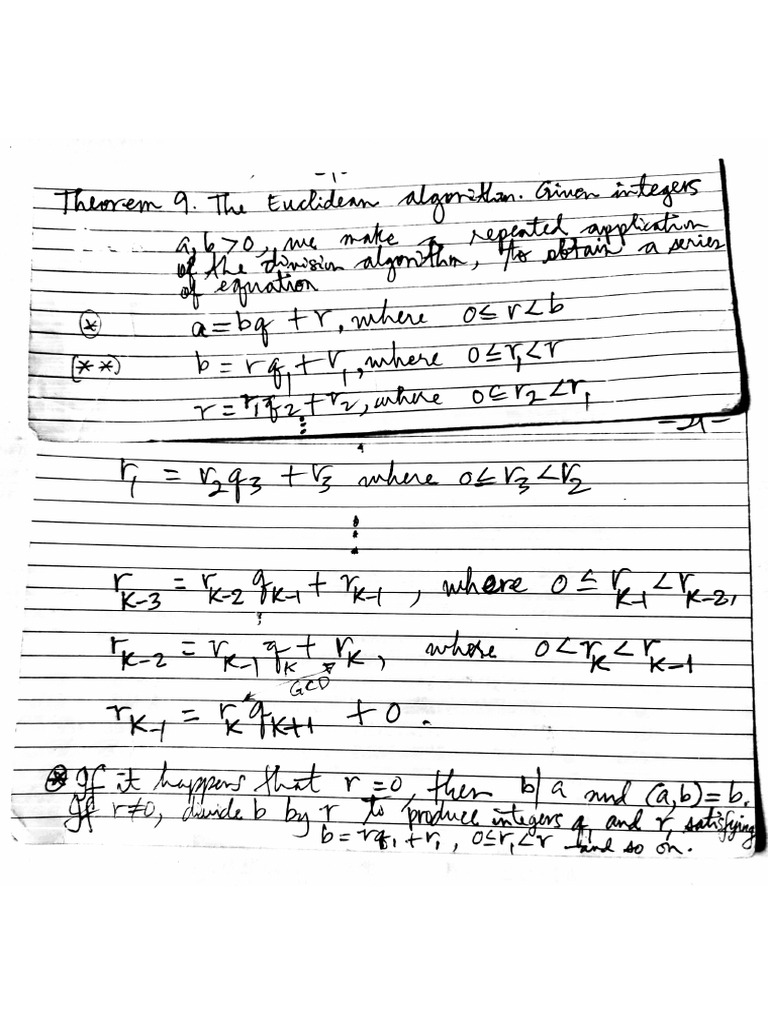 -1-
Theorem 9. The Euclidean algorithm. Given integers
a, b > 0, we make a repeated application
of the division algorithm, to obtain a series
of equation
(*) a = bq + r, where 0 ≤ r < b
(**) b = rq₁ + r₁, where 0 ≤ r₁ < r
r = r₁q₂ + r₂, where 0 ≤ r₂ < r₁
⋮
-21-
r₁ = r₂q₃ + r₃ where 0 ≤ r₃ < r₂
⋮
r_{k-3} = r_{k-2} q_{k-1} + r_{k-1}, where 0 ≤ r_{k-1} < r_{k-2},
r_{k-2} = r_{k-1} q_k + r_k, where 0 < r_k < r_{k-1}
GCD
r_{k-1} = r_k q_{k+1} + 0.
(*) If it happens that r = 0, then b | a and (a, b) = b.
If r ≠ 0, divide b by r to produce integers q₁ and r₁ satisfying
b = rq₁ + r₁, 0 ≤ r₁ < r and so on.